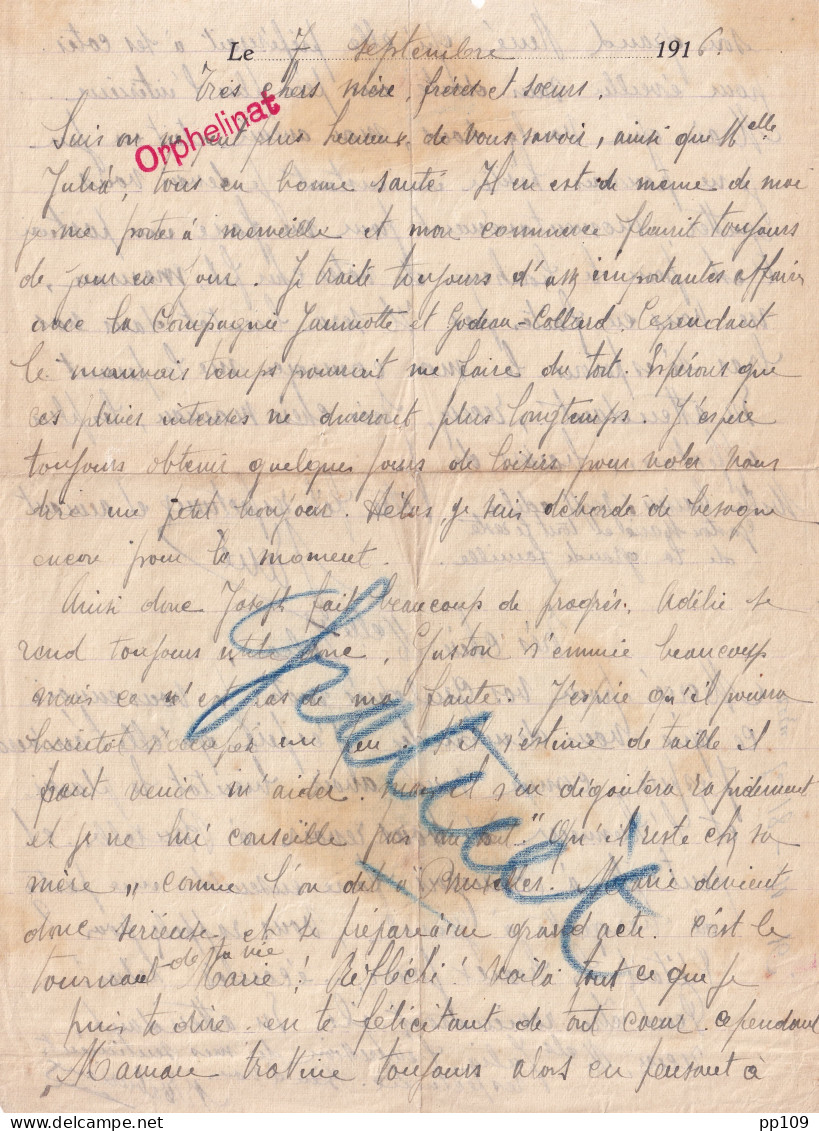 Le 7 septembre 1916.
Très chers mère, frères et sœurs.
Orphelinat
Suis on ne peut plus heureux de vous savoir, ainsi que Melle
Julia, tous en bonne santé Il en est de même de moi
je me porte à merveille et mon commerce fleurit toujours
de jour en jour. Je traite toujours d'assz importantes affaires
avec la Compagnie Jannotte et Godeau-Colliard. Cependant
le mauvais temps pourrait me faire du tort. Espérons que
ces pluies intenses ne dureront plus longtemps. J'espère
toujours obtenir quelques jours de loisirs pour voler vous
dire un petit bonjour. Hélas, je suis débordé de besogne
encore pour le moment.
Ainsi donc Joseph fait beaucoup de progrès. Adélie se
rend toujours utile donc, Gaston s'ennuie beaucoup
mais ce n'est pas de ma faute. J'espère qu'il pourra
bientôt s'occuper un peu. S'il s'estime de taille il
peut venir m'aider. mais il s'en dégoutera rapidement
et je ne lui conseille pas du tout. "Qu'il reste chez sa
mère" comme l'on dit à Bruxelles. Marie devient
donc sérieuse et se prépare à un grand acte. C'est le
tournant de ta vie Marie! Réfléchi! Voilà tout ce que je
puis te dire en te félicitant de tout cœur. cependant
Maman trottine toujours alors en pensant à